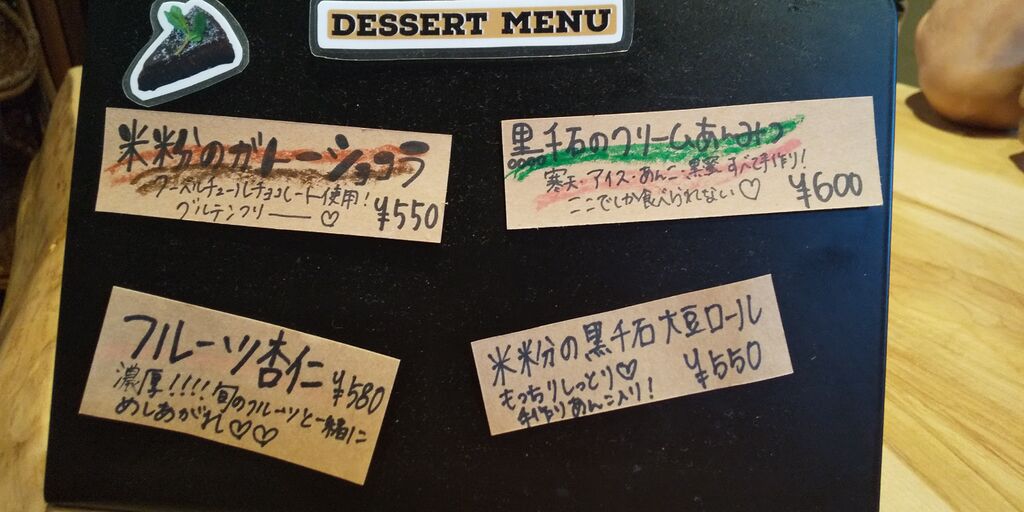 DESSERT MENU
米粉のガトーショコラ
クーベルチュールチョコレート使用!
グルテンフリー♡
¥550
黒千石のクリームあんみつ
寒天・アイス・あんこ・黒蜜すべて手作り!
ここでしか食べられない♡
¥600
フルーツ杏仁
¥580
濃厚!!!!旬のフルーツと一緒に
めしあがれ♡♡
米粉の黒千石大豆ロール
¥550
もっちりしっとり♡
手作りあんこ入り!